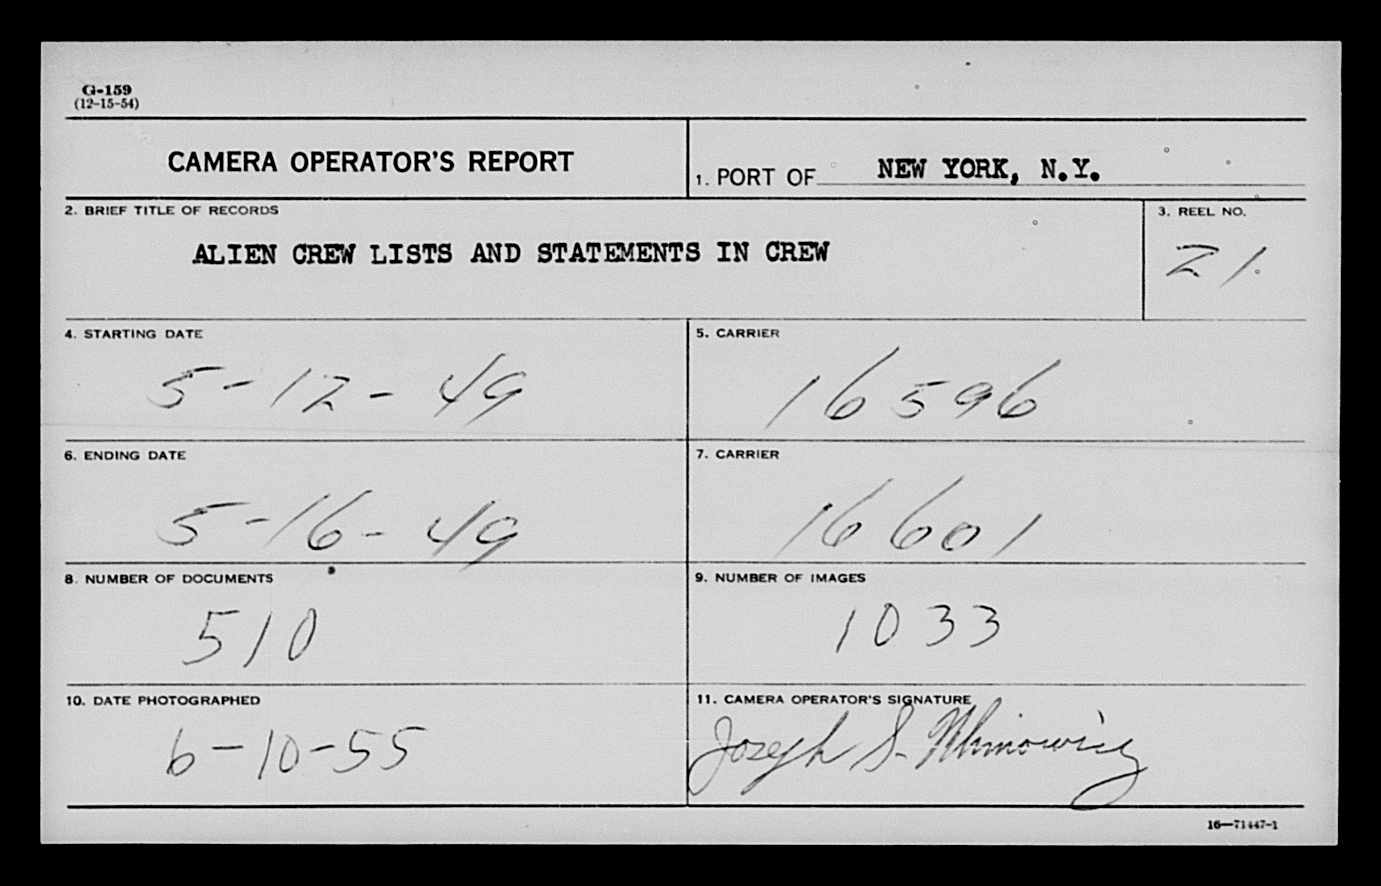 G-159
(12-15-54)
CAMERA OPERATOR'S REPORT
1. PORT OF NEW YORK, N.Y.
2. BRIEF TITLE OF RECORDS
ALIEN CREW LISTS AND STATEMENTS IN CREW
3. REEL NO.
21.
4. STARTING DATE
5-12-49
5. CARRIER
16596
6. ENDING DATE
5-16-49
7. CARRIER
16601
8. NUMBER OF DOCUMENTS
510
9. NUMBER OF IMAGES
1033
10. DATE PHOTOGRAPHED
6-10-55
11. CAMERA OPERATOR'S SIGNATURE
Joseph S.
16—71447-1